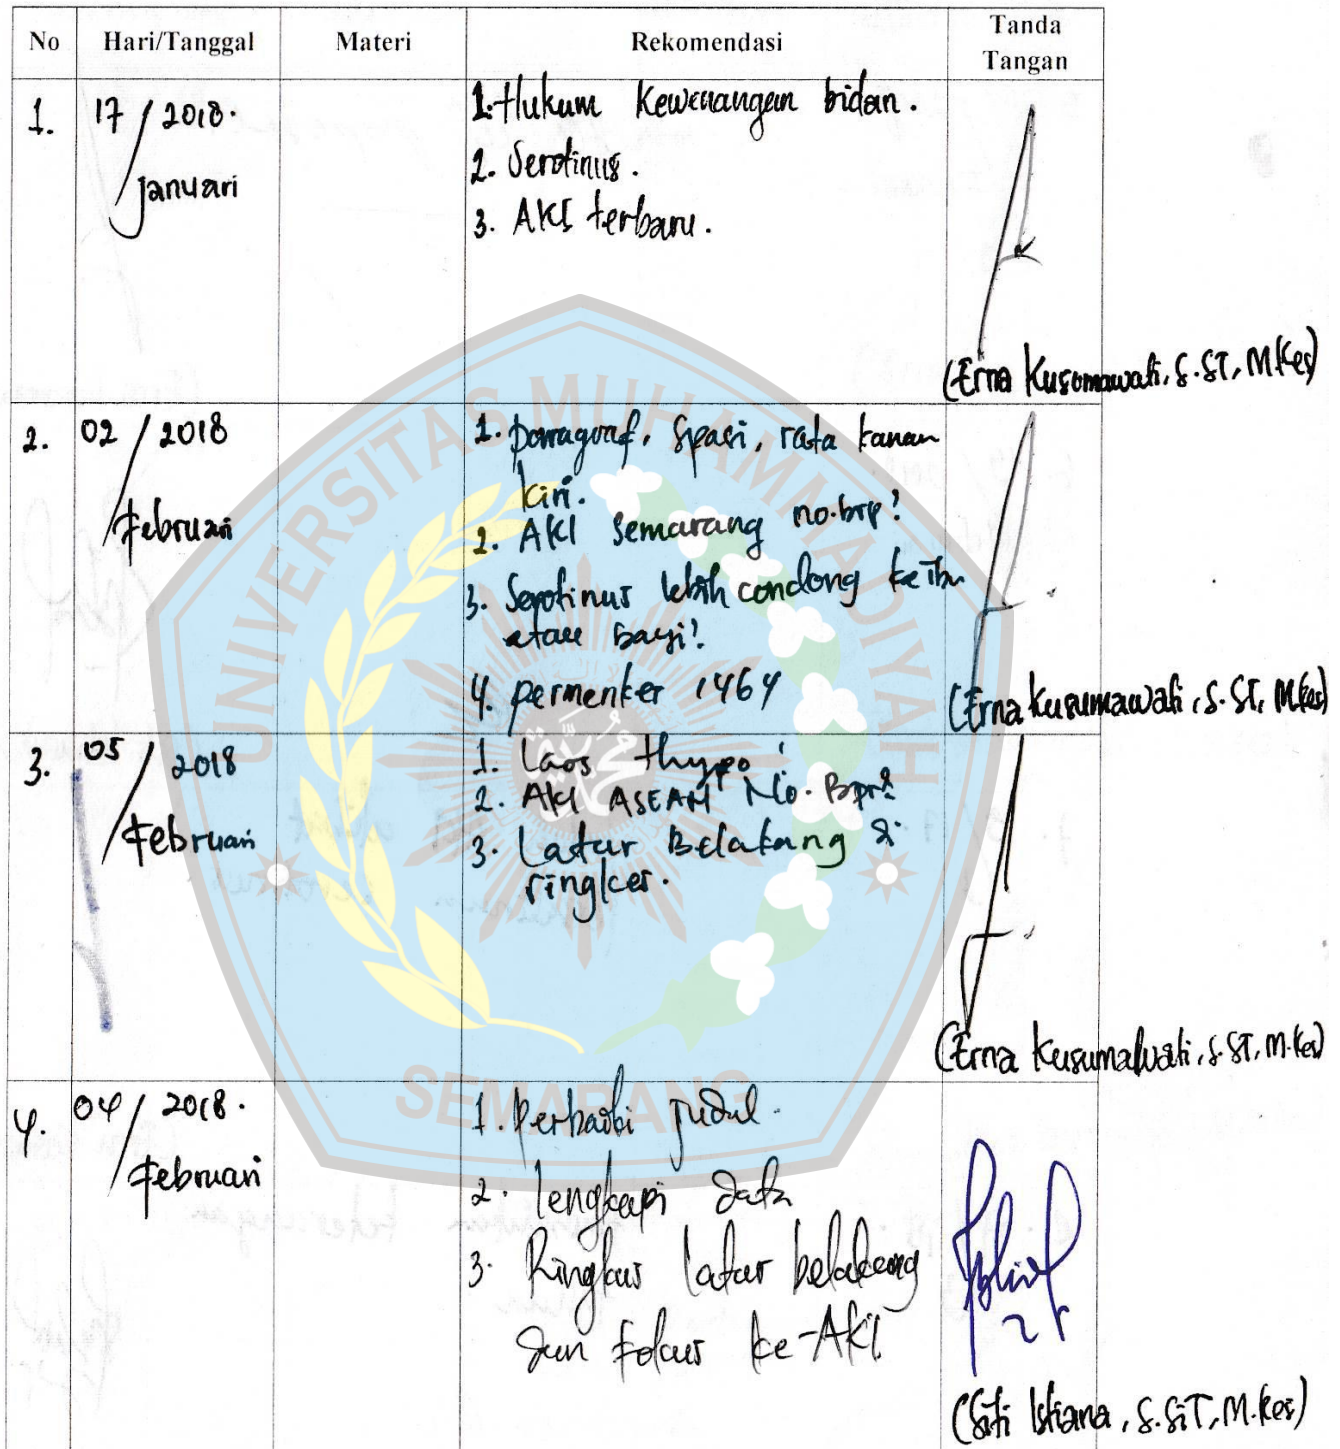 No Hari/Tanggal Materi Rekomendasi Tanda Tangan
1. 17 / 2018. januari
1. Hukum Kewenangan bidan.
2. Serotinus.
3. AKI terbaru.
(Erna Kusumawati, S.ST, M.Kes)
2. 02 / 2018 Februari
1. paragraf, spasi, rata kanan
kiri.
2. AKI Semarang no.brp?
3. Serotinus lebih condong ke ibu
atau bayi?
4. permenkes 1464
(Erna Kusumawati, S.ST, M.Kes)
3. 05 / 2018 Februari
1. Laos thypo
2. AKI ASEAN No. Bpr?
3. Latar Belakang di
ringkes.
(Erna Kusumawati, S.ST, M.Kes)
4. 04 / 2018. Februari
1. Perbaiki judul.
2. lengkapi data
3. Ringkas latar belakang
dan fokus ke-AKI
(Siti Istiana, S.SiT, M.Kes)
UNIVERSITAS MUHAMMADIYAH
SEMARANG